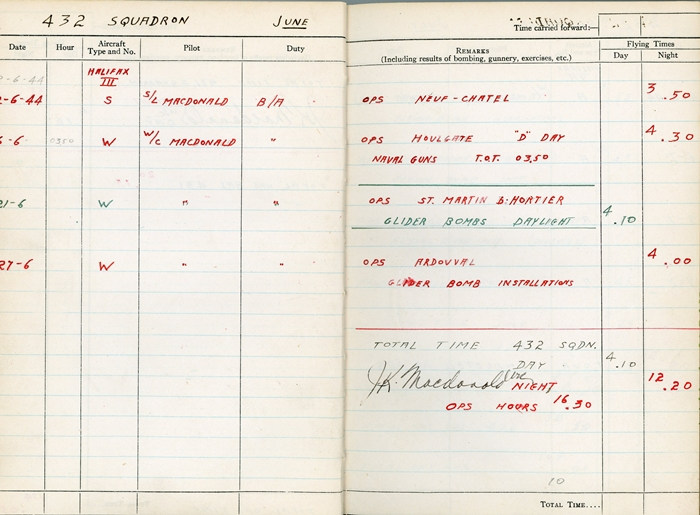 432 SQUADRON JUNE
Date Hour Aircraft Type and No. Pilot Duty
-6-44 HALIFAX III
-6-44 S S/L MACDONALD B/A
-6 0350 W W/C MACDONALD "
21-6 W " "
27-6 W " "
Time carried forward:—
REMARKS
(Including results of bombing, gunnery, exercises, etc.)
Flying Times
Day Night
OPS NEUF-CHATEL 3.50
OPS HOULGATE "D" DAY 4.30
NAVAL GUNS T.O.T. 03.50
OPS ST. MARTIN B. HORTIER
GLIDER BOMBS DAYLIGHT 4.10
OPS ARDOUVAL 4.00
GLIDER BOMB INSTALLATIONS
TOTAL TIME 432 SQDN.
DAY 4.10
J.K. Macdonald W/C NIGHT 12.20
OPS HOURS 16.30
10
TOTAL TIME....